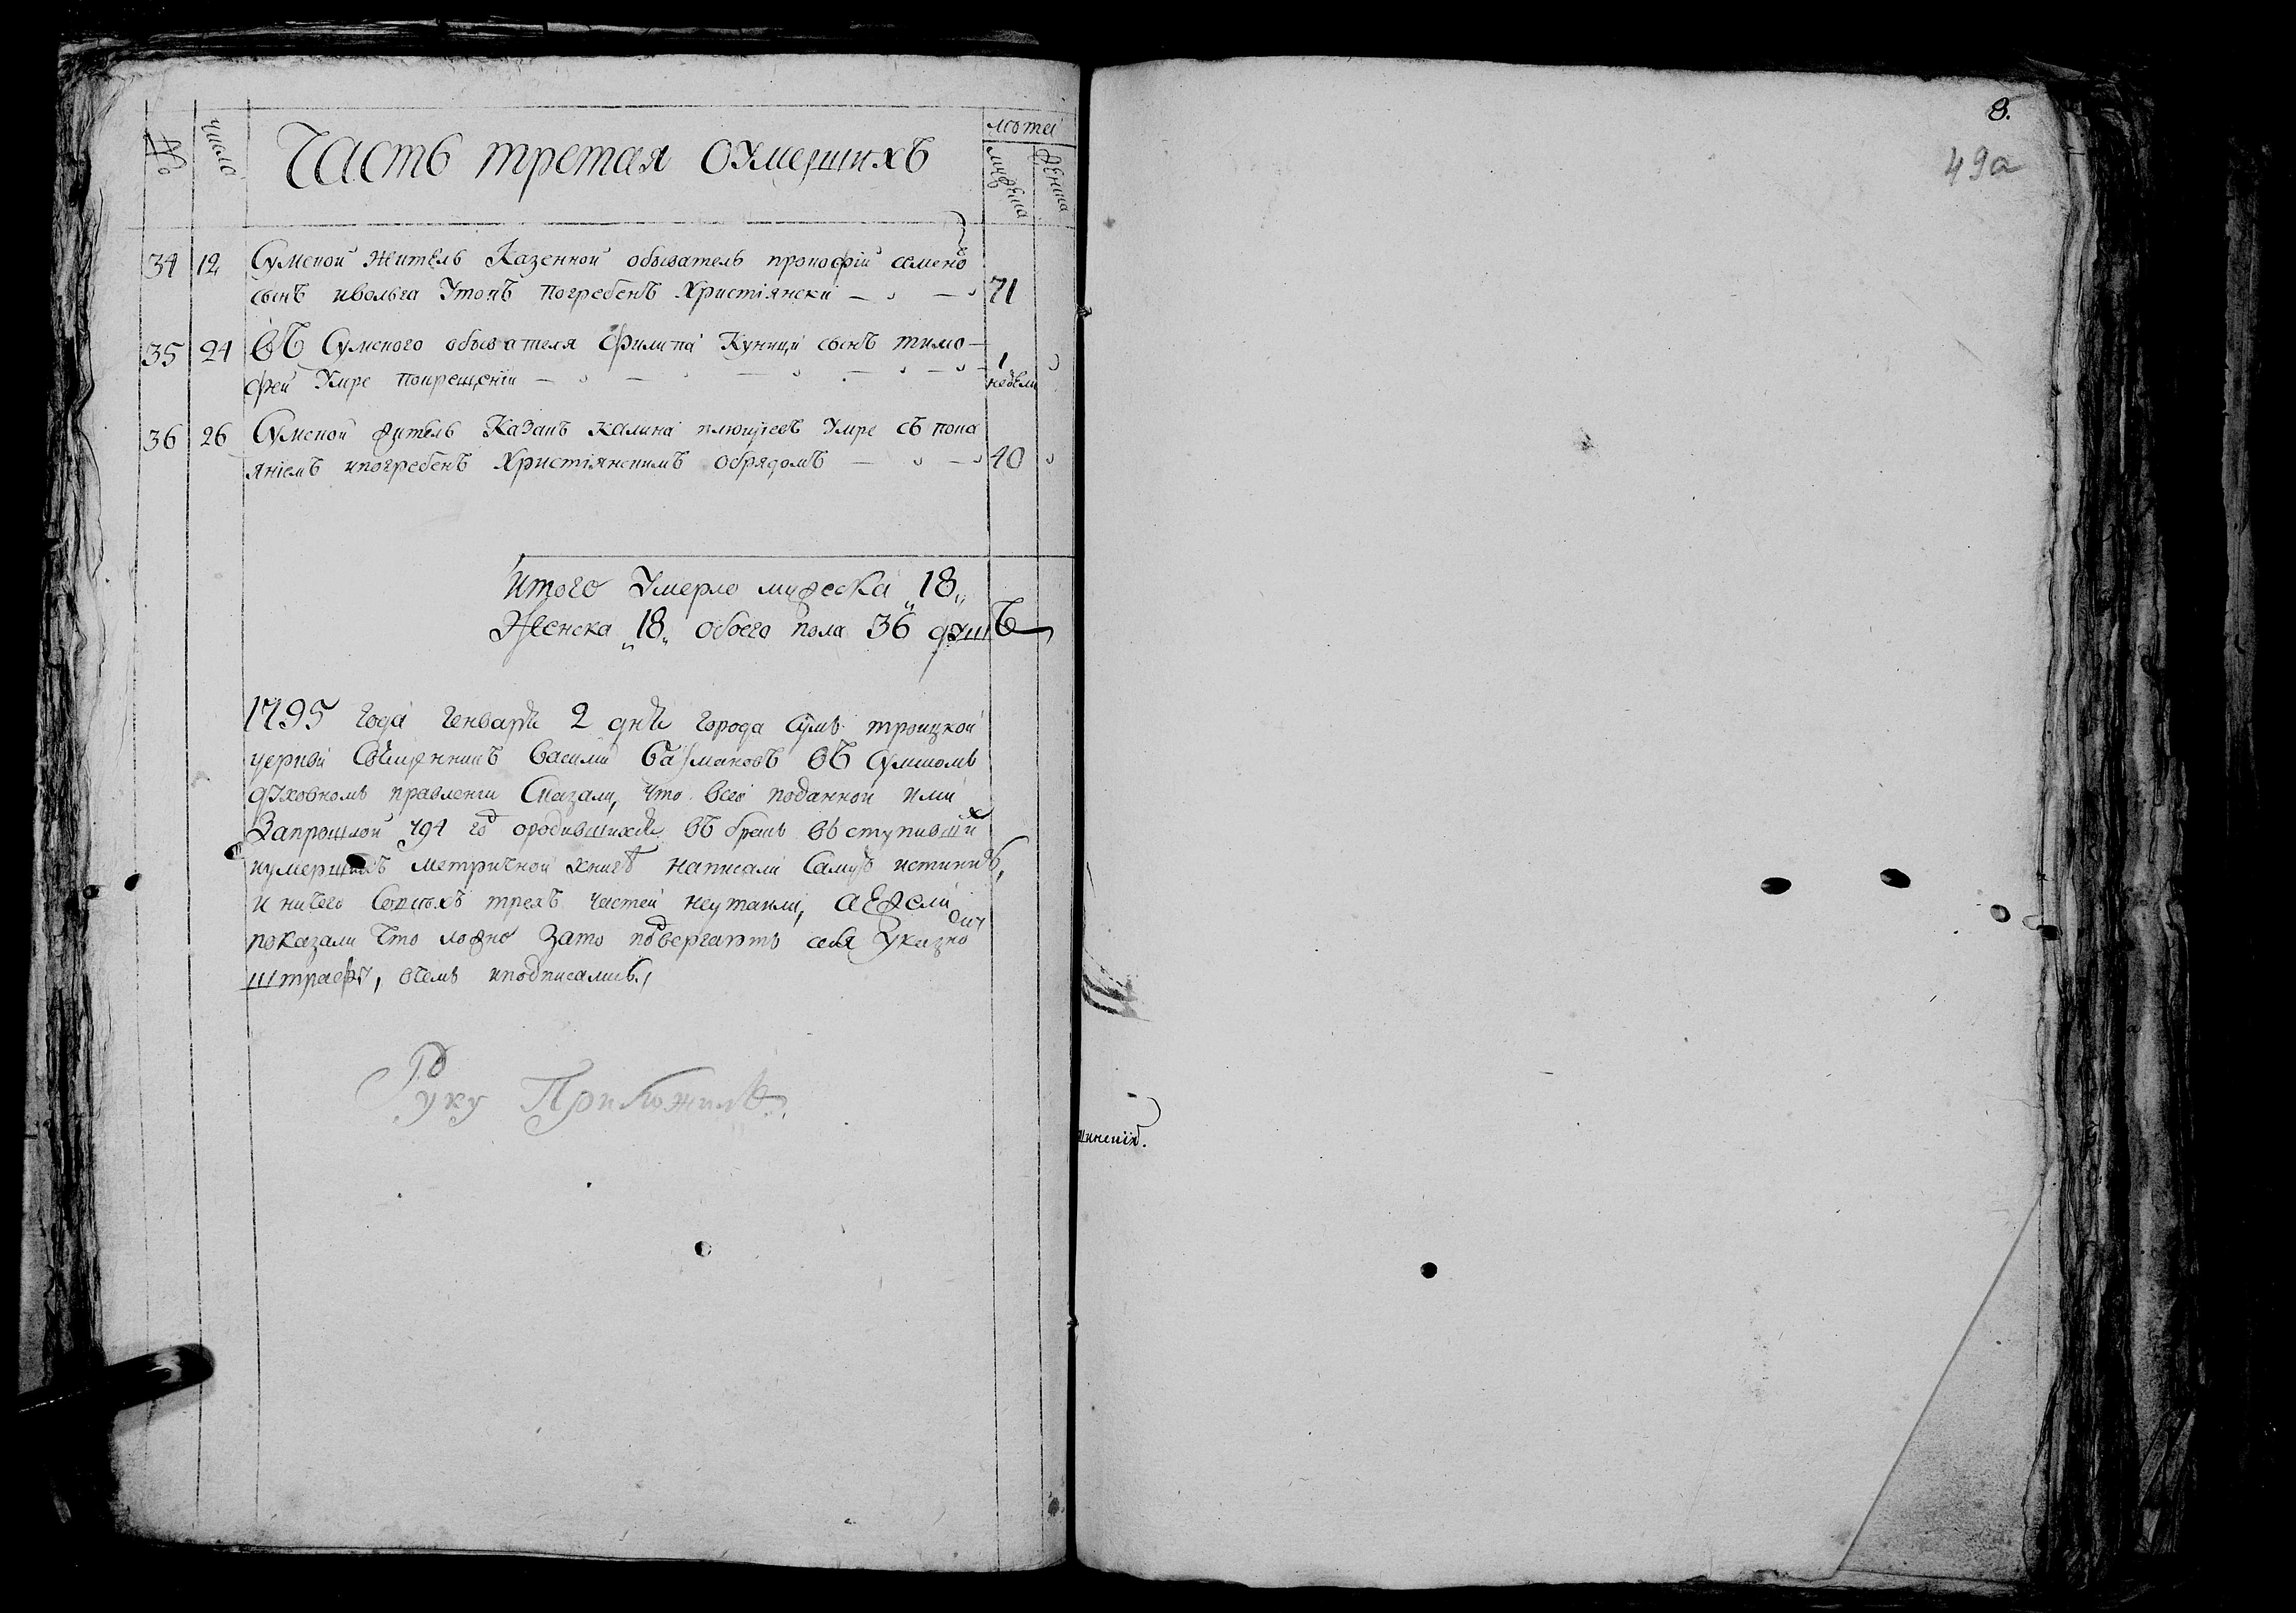 № число Часть третая оумершихъ лѣта мужеска женска
34 12 Сумской житель Казенной обыватель прокофій семено
сынъ ивольга Утопъ погребенъ Христіянски 71
35 24 въ Сумского обывателя Филипа Куници сынъ тимо-
фей Умре покрещеніи 1 недели
36 26 Сумской житель Казакъ калина Умре съ пока
яніемъ ипогребенъ Христіянскимъ обрядомъ 40
Итого Умерло мужеска 18
Женска 18 обоего пола 36 душъ
1795 года генваря 2 дня города Сумъ троицкой
церкви Священникъ Василій въ Сумскомъ
духовномъ правленіи Сказали, что всей поданной ими
Запрошлой 794 год ородившихся въ бракъ вступивших
иумершихъ метричной книгѣ написали Самую истинну,
и ничего трехъ частей неутаили, аежели
показали что ложно Зато подвергаютъ себя Указно
штрафу, вчемъ иподписались,
Руку Приложилъ
8.
49а